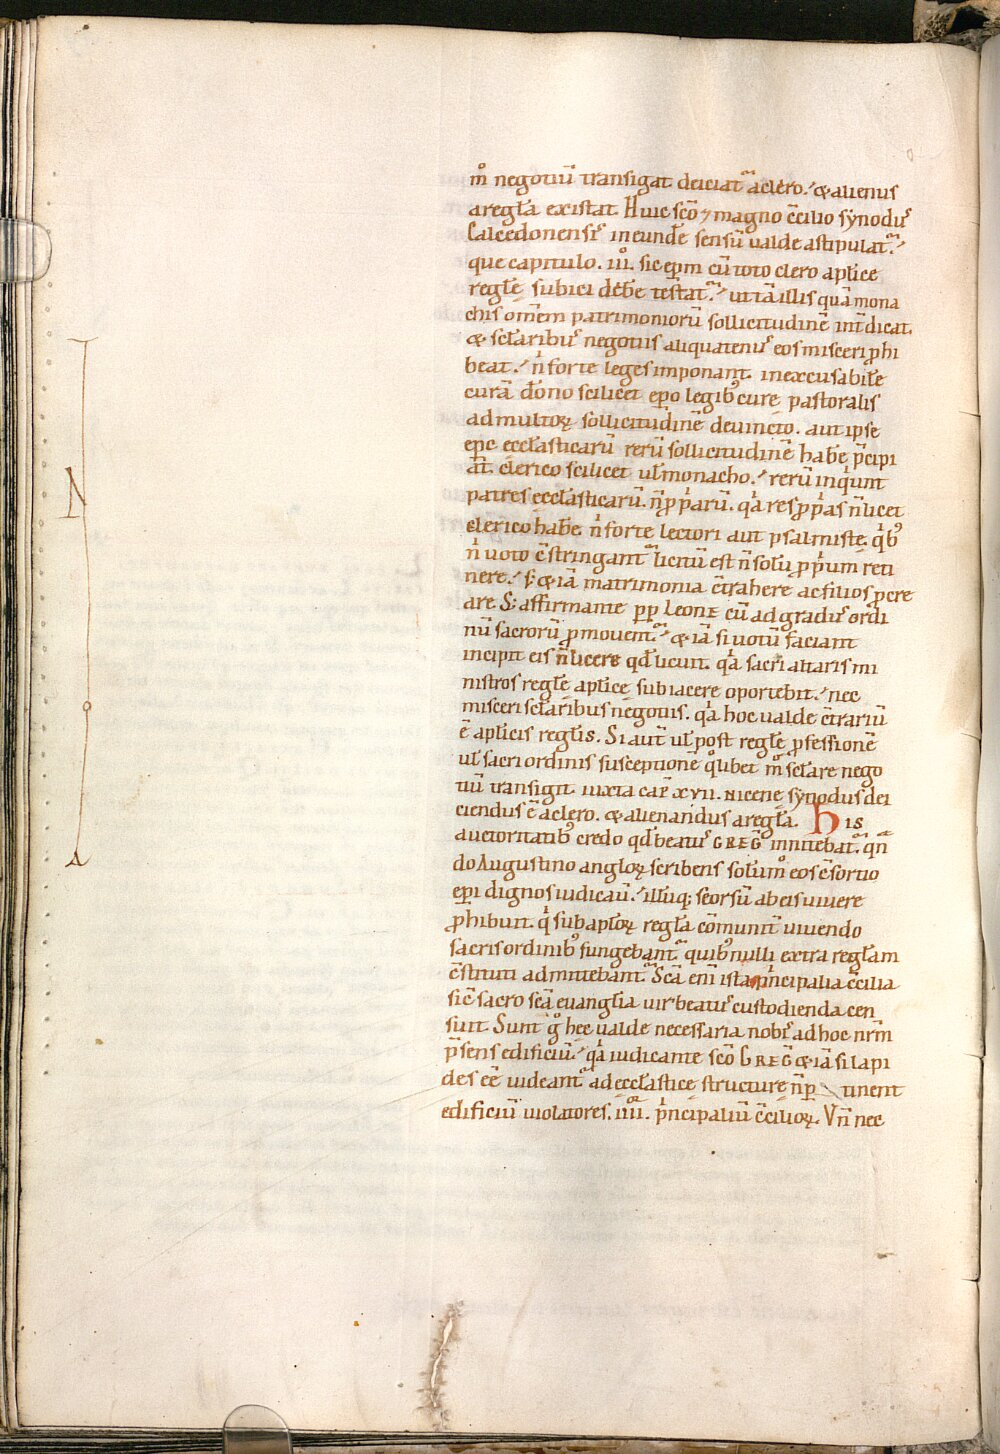 m̊ negotiū transigat deiciat᷒ aclero. & alienus
a regła existat. Huic sc̄o 7 magno c̄cilio synodus
Calcedonensis in eunde sensū ualde astipulat᷒.
que capitulo .iii. sic ep̄m cū toto clero aplice
regłe subici debe testat᷒. ut tā illis quā mona
chis omēm patrimoniorū sollicitudinē int̄dicat.
& sclaribus negotiis aliquatenus eos misceri phi
beat. n̄ forte leges imponant inexcusabile
curā. dōno scilicet ep̄o legib; cure pastoralis
ad multoꝝ sollicitudinē deuincto. aut ipse
ep̄c ecclasticarū rerū sollicitudinē habe p̄cipi
at. clerico scilicet ul monacho. rerū inquiunt
patres ecclasticarū. n̄ pparū. qa res ppas n̄ licet
clerico habe. n̄ forte lectori aut psalmiste. qb;
n̄ uoto c̄stringant᷒ licitū est n̄ solū pp̄um reti
nere. s; & iā matrimonia c̄trahere ac filios pcre
are. S; affirmante pp Leone cū ad gradus ordi
nū sacrorū pmouent᷒. & iā si uotū faciant
incipit eis n̄ licere qd licuit. qa sacri altaris mi
nistros regłe aplice subiacere oportebit. nec
misceri sclaribus negotiis. qa hoc ualde c̄trariū
ē aplicis reglis. Si aut̄ ul post regłe pfessionē
ul sacri ordinis susceptionē qlibet m̊ sclare nego
tiū transigit iuxta cap xvii. nicene synodus dei
ciendus ē aclero. & alienandus a regła. His
auctoritatib; credo qd beatus GREḠ innitebat᷒. qn̄
do Augustino angloꝝ scribens solum̊ eos c̄sortio
ep̄i dignos iudicau. illūq; seorsū ab eis uiuere
phibuit. q̄ sub aploꝝ regła cōmunit̄ uiuendo
sacris ordinib; fungebant᷒ quib; nulli extra regłam
c̄stituti admittebant᷒. Scā enī ista p̄ncipalia c̄cilia
sic̄ sacro scā euanglia uir beatus custodienda cen
suit. Sunt g̊ hec ualde necessaria nobis ad hoc nr̄m
p̄sens edificiū. qa iudicante sc̄o GREḠ & iā si lapi
des eē uideant᷒ ad ecclastice structure n̄ ptinent
edificiū uiolatores .iiii. p̄ncipaliū c̄cilioꝝ. Vn̄ nec